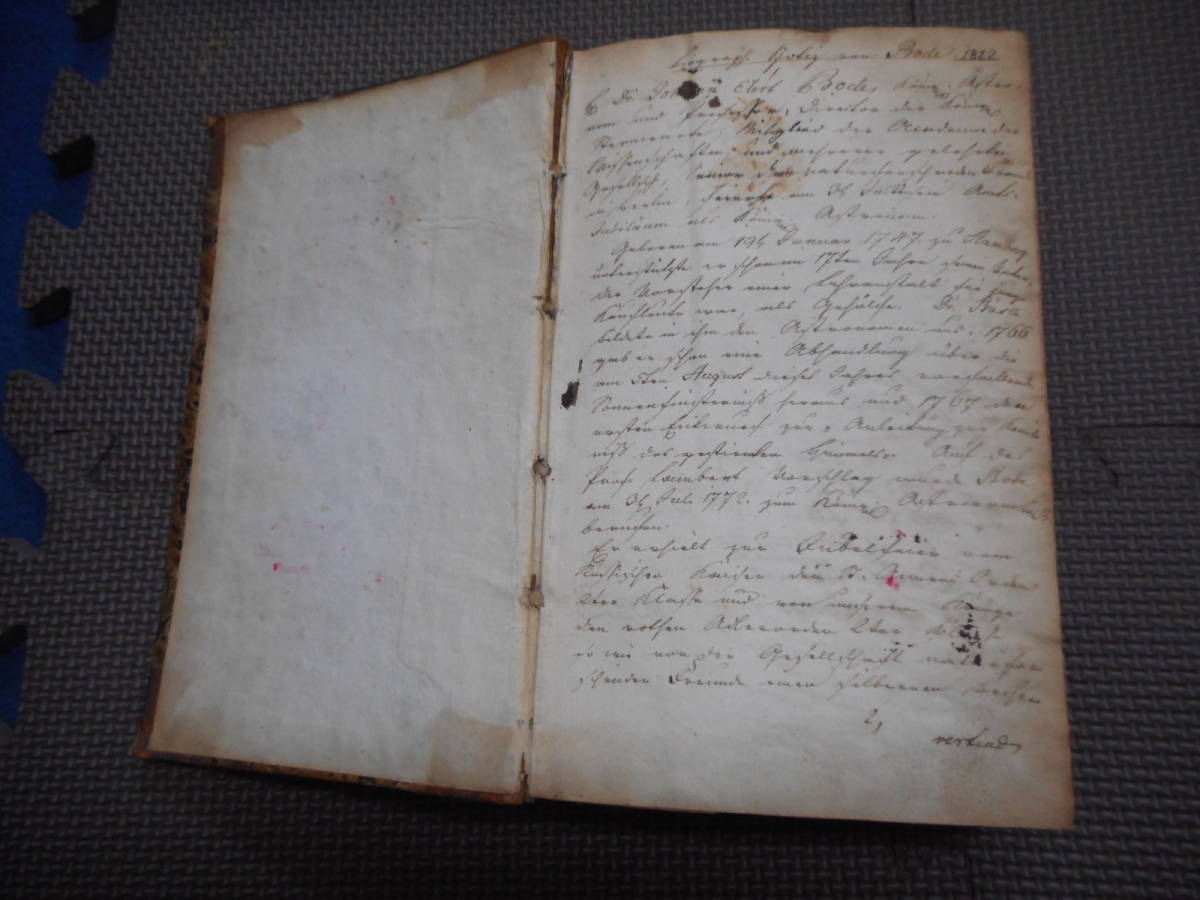 biograph. Notiz von Bode 1822
Dr. Johann Elert Bode, Königl. Astro-
nom und Professor, Director der Königl.
Sternwarte, Mitglied der Academie der
Wissenschaften, und mehrerer gelehrten
Gesellsch. Senior der naturforschenden Freunde
in Berlin, feierte am Amts-
Jubiläum als Königl. Astronom.
Geboren am 19t Januar 1747. zu Hamburg
unterstützte er schon im 17ten Jahre seinen Vater,
der Vorsteher einer Lehranstalt für
Kaufleute war, als Gehülfe. Dr.
bildete in ihm den Astronomen aus. 1766
gab er schon eine Abhandlung über die
am 5ten August dieses Jahres vorfallende
Sonnenfinsterniss heraus und 1767 den
ersten Entwurf zur Anleitung zur Kennt-
niss des gestirnten Himmels. Auf des
Prof. Lambert Vorschlag wurde Bode
am Juli 1772. zum Königl. Astronomen
berufen.
Er erhielt zur Jubelfeier vom
Russischen Kaiser den St. Annen Orden
2ter Klasse und von unserem Könige
den rothen Adlerorden 2ter Klasse
so wie von der Gesellschaft naturfor-
schender Freunde einen silbernen Becher